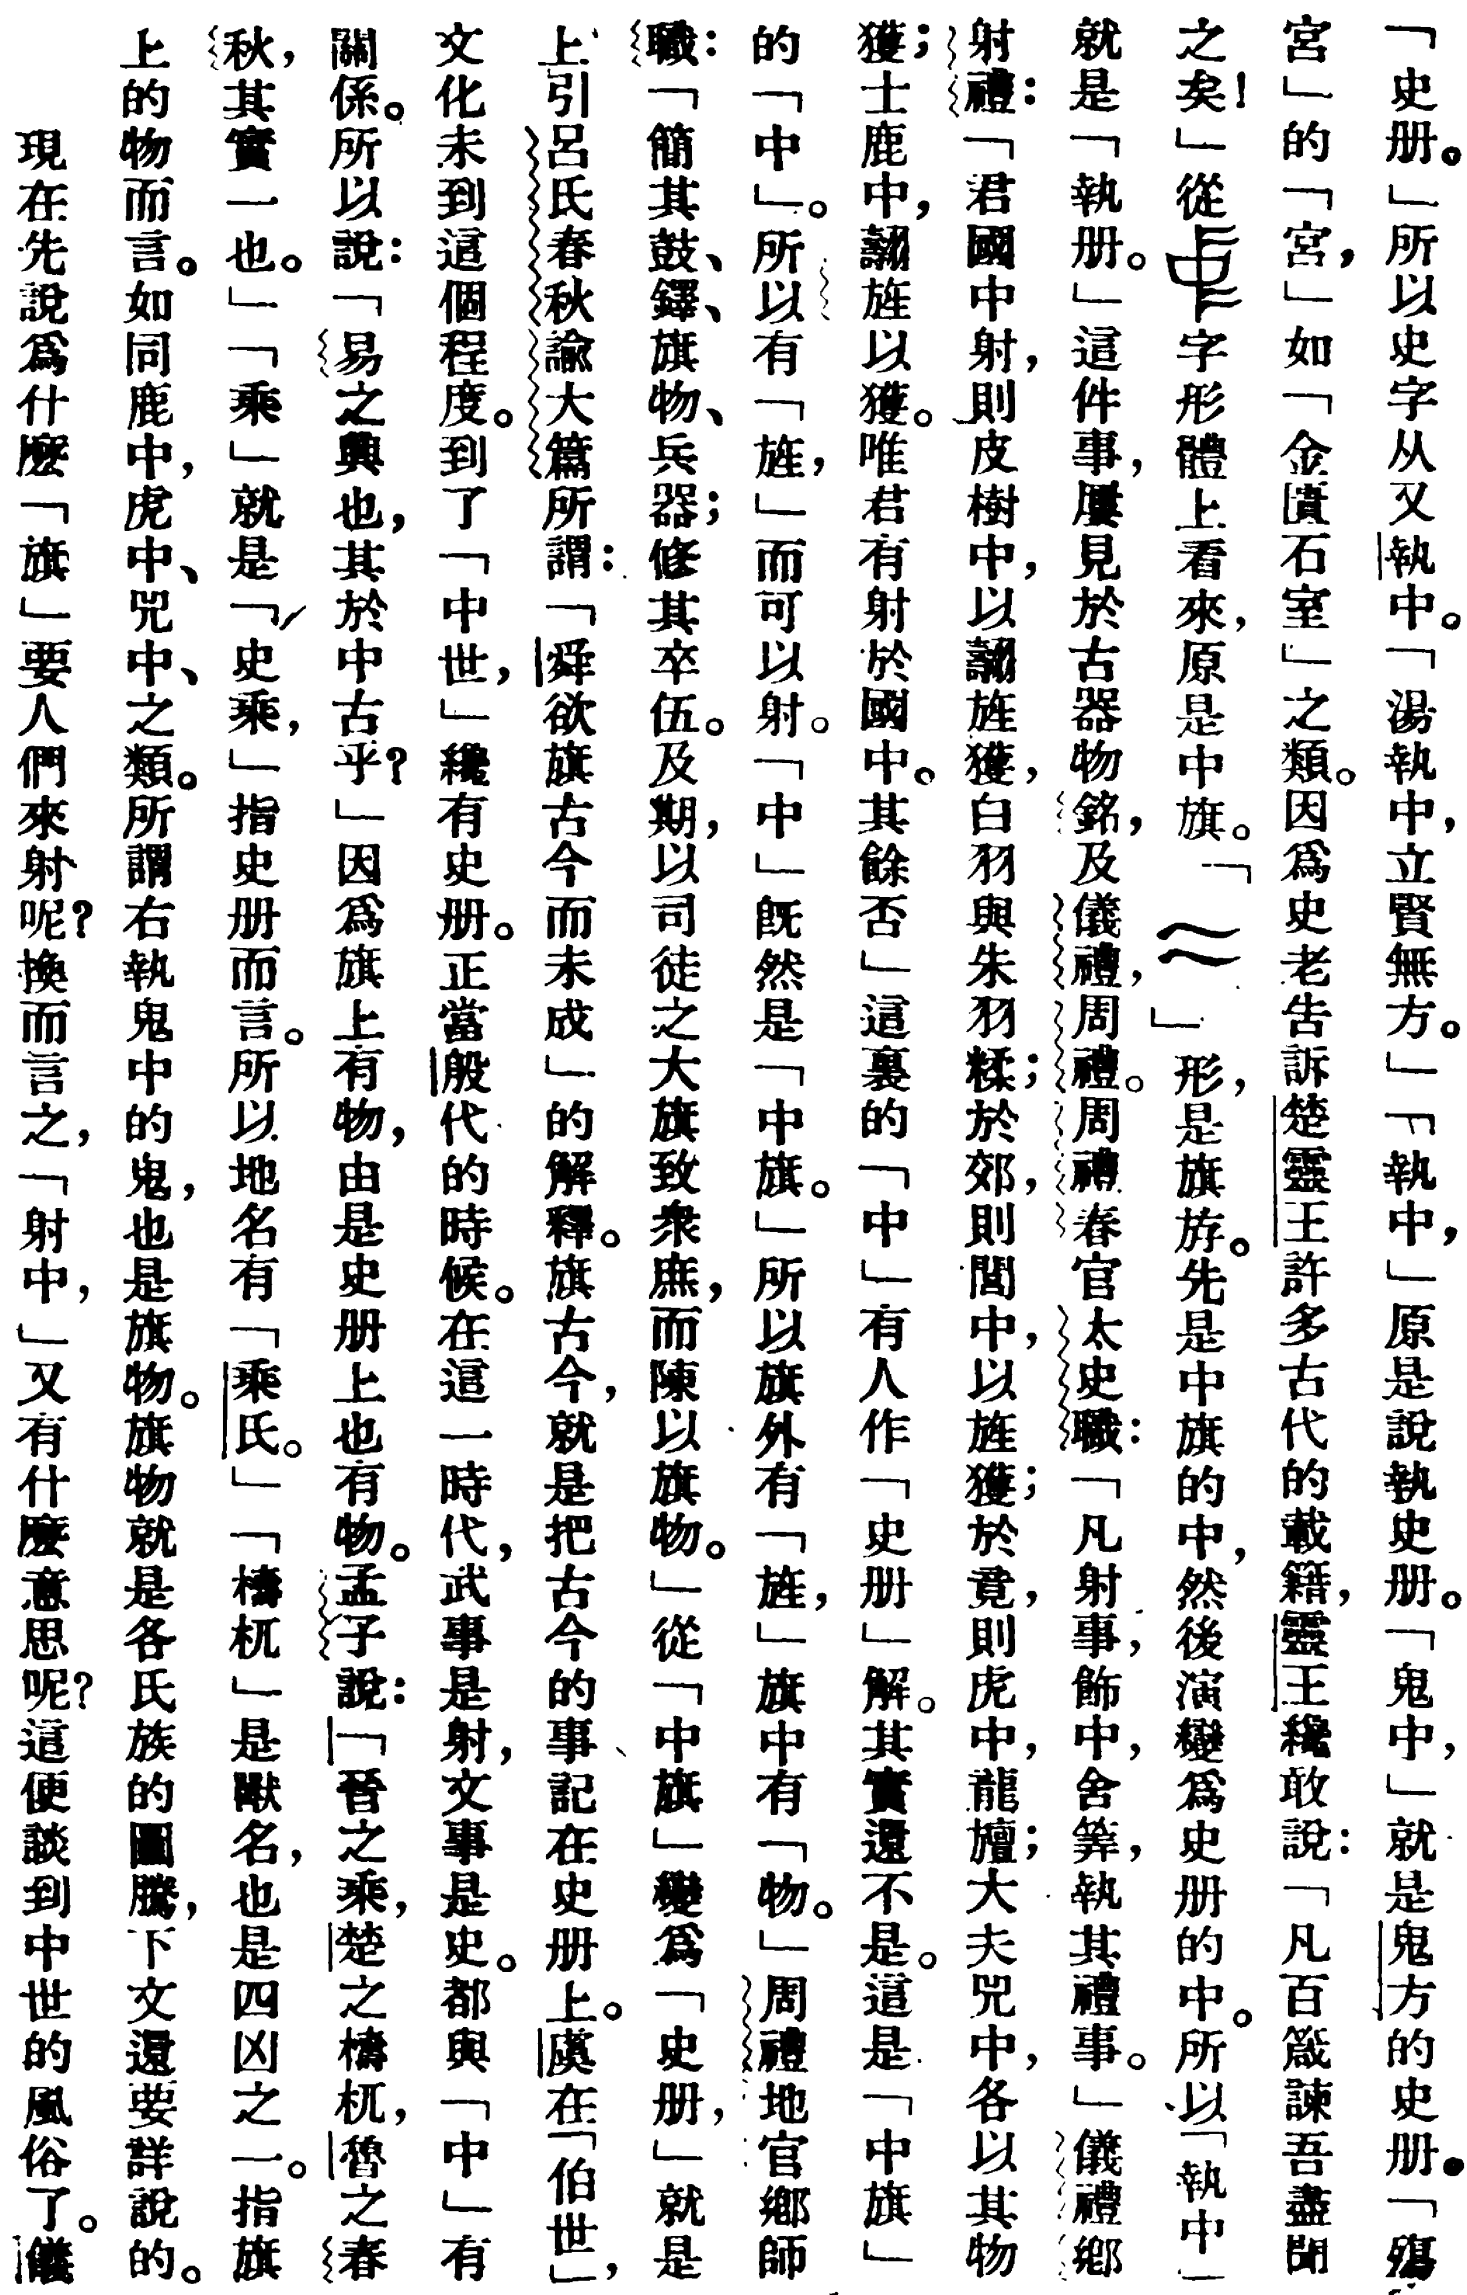 「史册。」所以史字从又執中。「湯執中，立賢無方。」「「執中，」原是說執史册。「鬼中，」就是鬼方的史册。「殤
宮」的「宮，」如「金匱石室」之類。因爲史老告訴楚靈王許多古代的載籍，靈王纔敢說：「凡百箴諫吾盡聞
之矣！」從字形體上看來，原是中旗。「」形，是旗斿。先是中旗的中，然後演變爲史册的中。所以「執中」
就是「執册。」這件事，屢見於古器物銘，及儀禮，周禮。周禮春官太史職：「凡射事，飾中，舍筭，執其禮事。」儀禮鄉
射禮：「君國中射，則皮樹中，以翿旌獲，白羽與朱羽糅；於郊，則閭中，以旌獲；於竟，則虎中，龍旜；大夫兕中，各以其物
獲；士鹿中，翿旌以獲。唯君有射於國中。其餘否」這裏的「中」有人作「史册」解。其實還不是。這是「中旗」
的「中」。所以有「旌，」而可以射。「中」既然是「中旗。」所以旗外有「旌，」旗中有「物。」周禮地官鄉師
職：「簡其鼓、鐸、旗物、兵器；修其卒伍。及期，以司徒之大旗致衆庶，而陳以旗物。」從「中旗」變爲「史册，」就是
上引呂氏春秋諭大篇所謂：「舜欲旗古今而未成」的解釋。旗古今，就是把古今的事記在史册上。虞在「伯世」，
文化未到這個程度。到了「中世，」纔有史册。正當殷代的時候。在這一時代，武事是射，文事是史。都與「中」有
關係。所以說：「易之興也，其於中古乎？」因爲旗上有物，由是史册上也有物。孟子說：「晉之乘，楚之檮杌，魯之春
秋，其實一也。」「乘」就是「史乘，」指史册而言。所以地名有「乘氏。」「檮杌」是獸名，也是四凶之一。指旗
上的物而言。如同鹿中，虎中、兕中、之類。所謂右執鬼中的鬼，也是旗物。旗物就是各氏族的圖騰，下文還要詳說的。
現在先說爲什麽「旗」要人們來射呢？換而言之，「射中，」又有什麽意思呢？這便談到中世的風俗了。儀